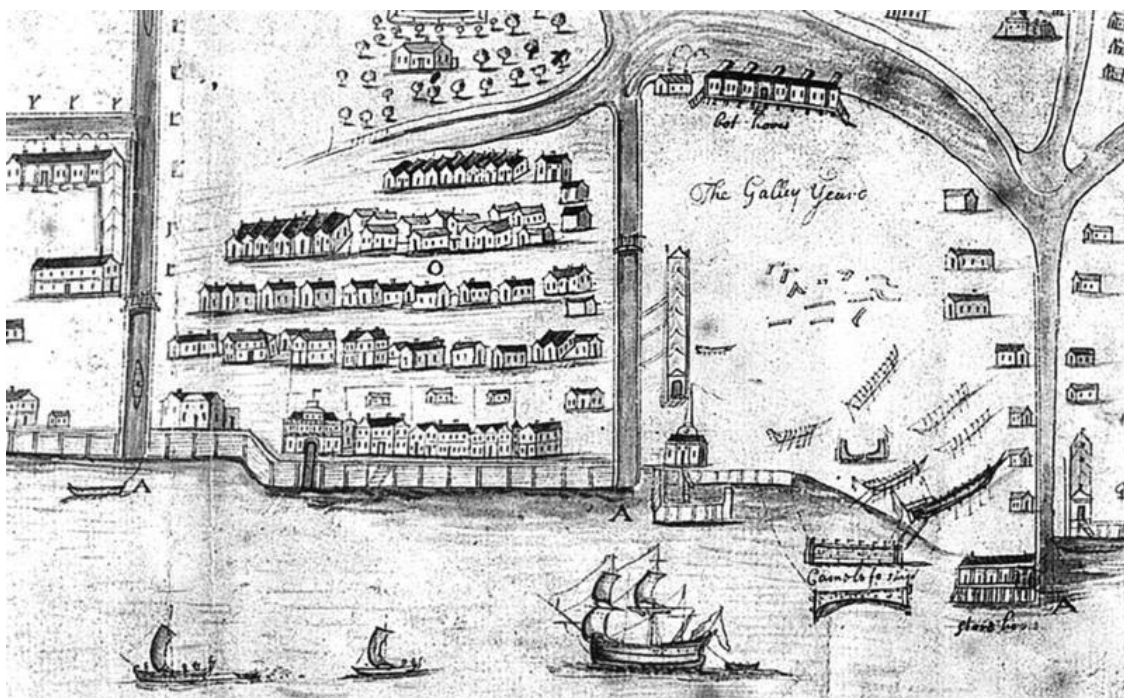 bot hows
The Galley Yeard
A
A
Camels fo ship
A
store hows